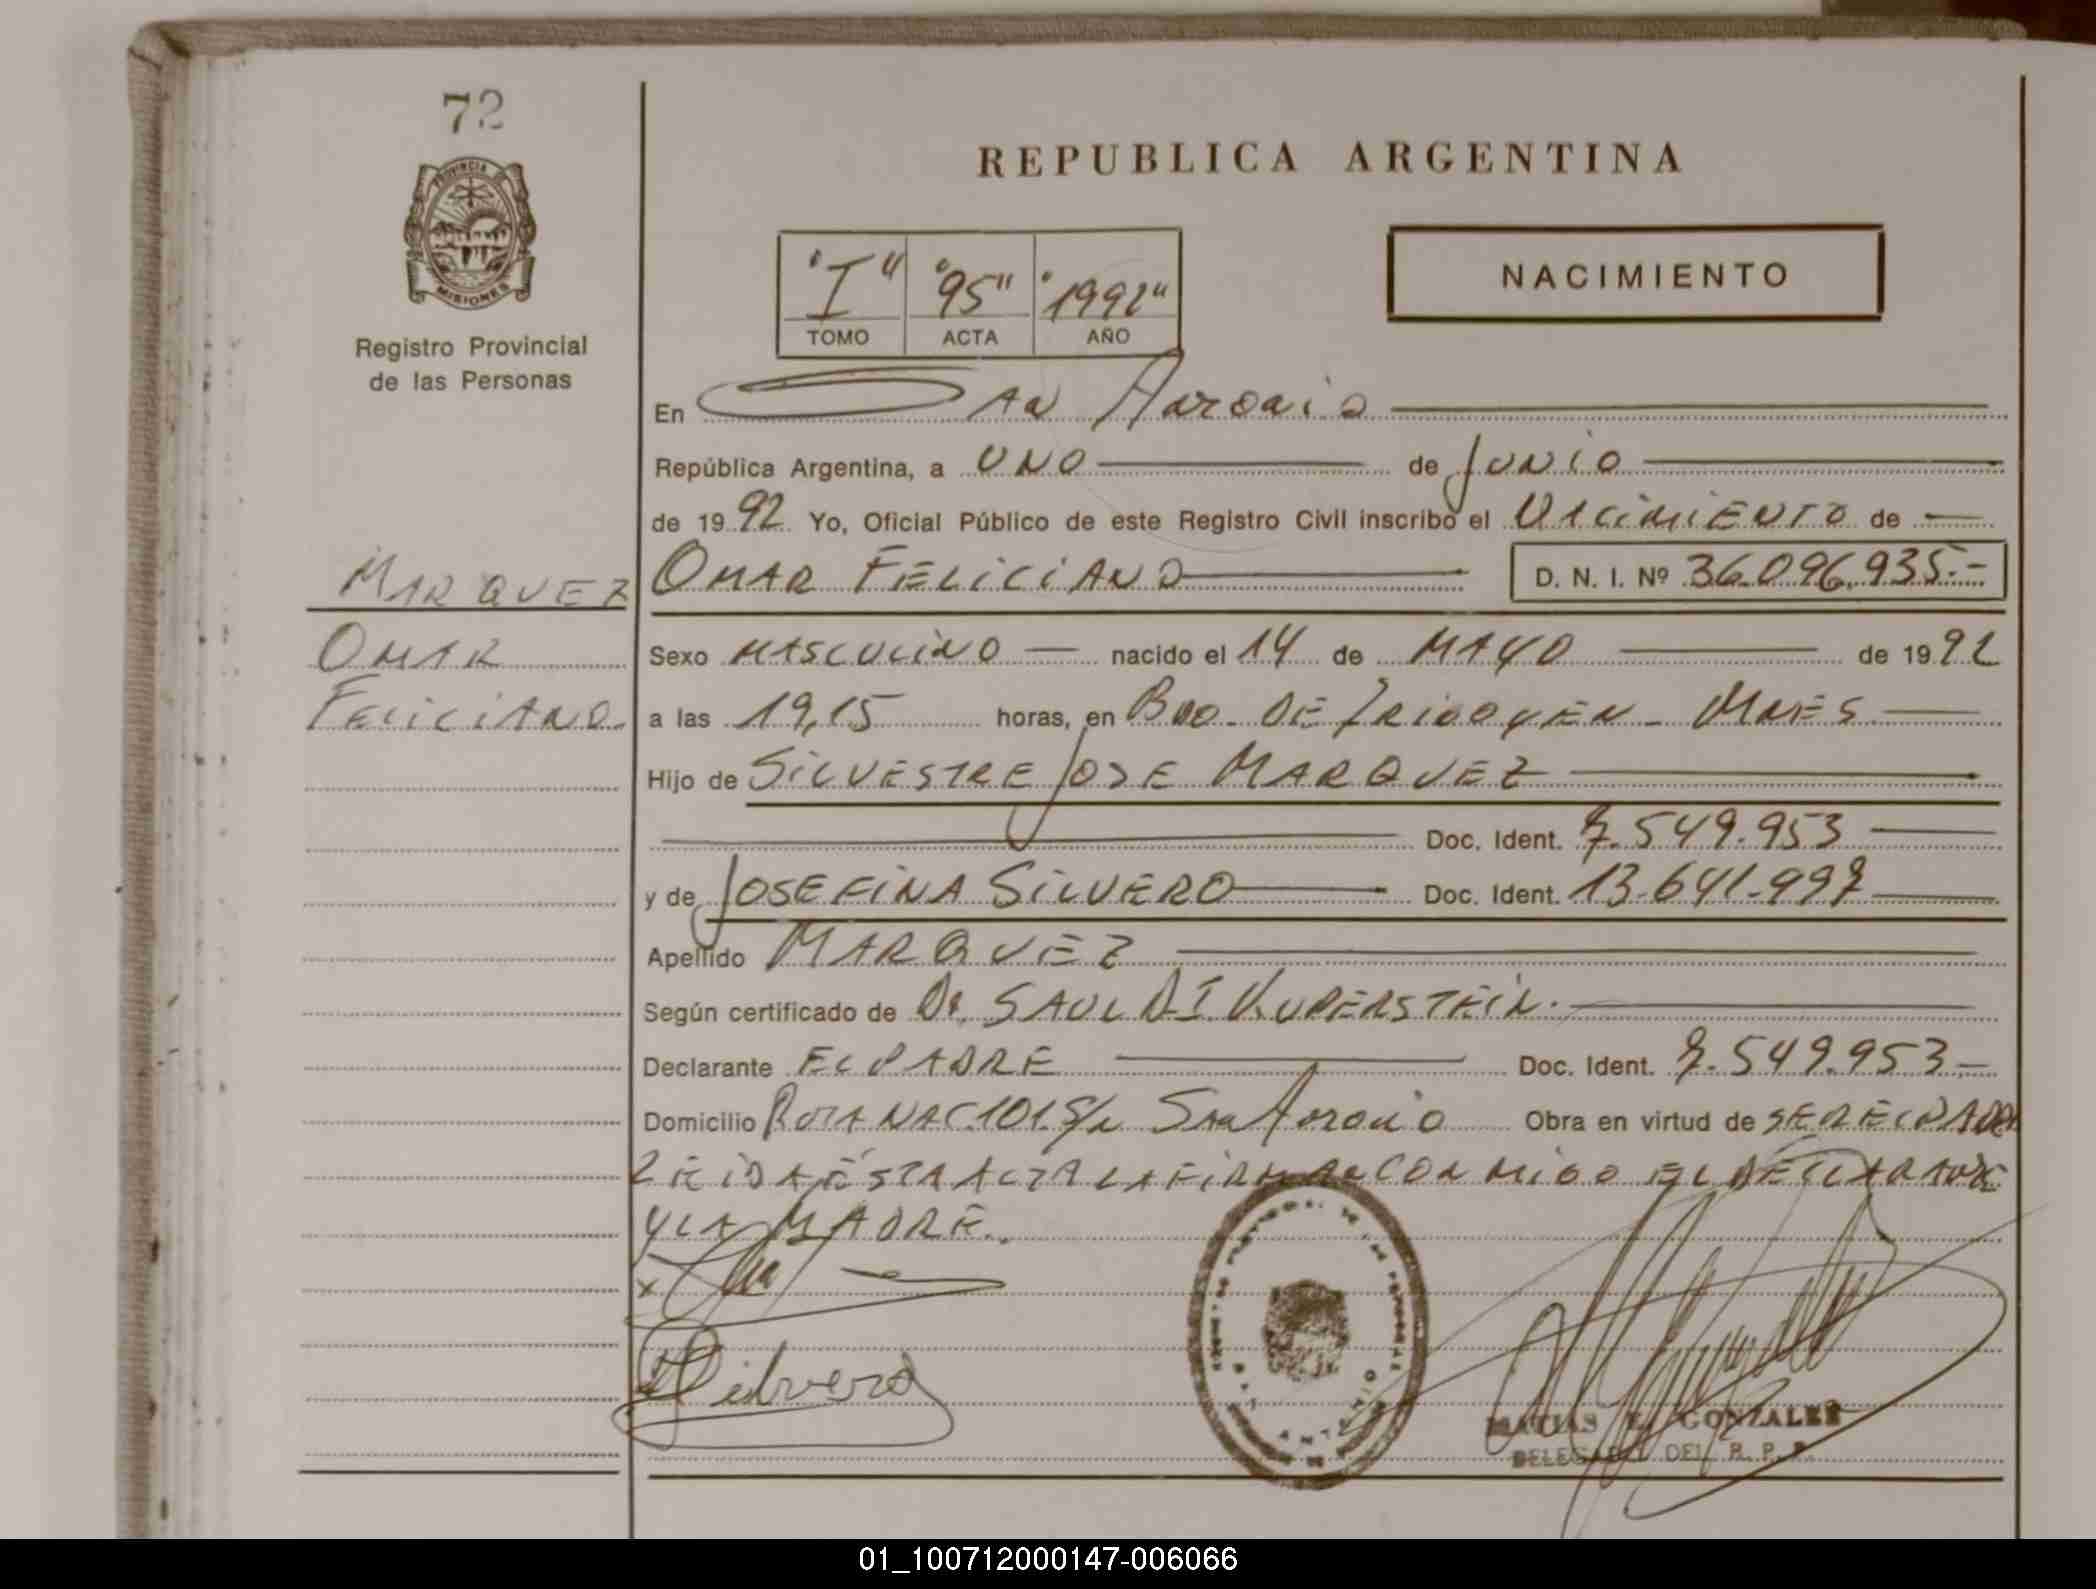 72
PROVINCIA DE
MISIONES
Registro Provincial
de las Personas
REPUBLICA ARGENTINA
"I" "95" "1992"
TOMO ACTA AÑO
NACIMIENTO
En San Antonio
República Argentina, a UNO de JUNIO
de 1992 Yo, Oficial Público de este Registro Civil inscribo el NACIMIENTO de
MARQUEZ
OMAR FELICIANO D. N. I. Nº 36.096.935.-
OMAR
FELICIANO
Sexo MASCULINO nacido el 14 de MAYO de 1992
a las 19,15 horas, en Bdo. DE IRIGOYEN - MNES
Hijo de SILVESTRE JOSE MARQUEZ
Doc. Ident. 7.549.953
y de JOSEFINA SILVERO Doc. Ident. 13.641.997
Apellido MARQUEZ
Según certificado de Dr. SAUL D.I. KUPERSTEIN.
Declarante EL PADRE Doc. Ident. 7.549.953-
Domicilio RUTA NAC.101. S/n San Antonio Obra en virtud de SER EL PADRE
LEIDA ÉSTA ACTA LA FIRMAN CONMIGO EL DECLARANTE
Y LA MADRE.
x
Silvero
MATIAS E. GONZALEZ
DELEGADO DEL R. P. P.
01_100712000147-006066